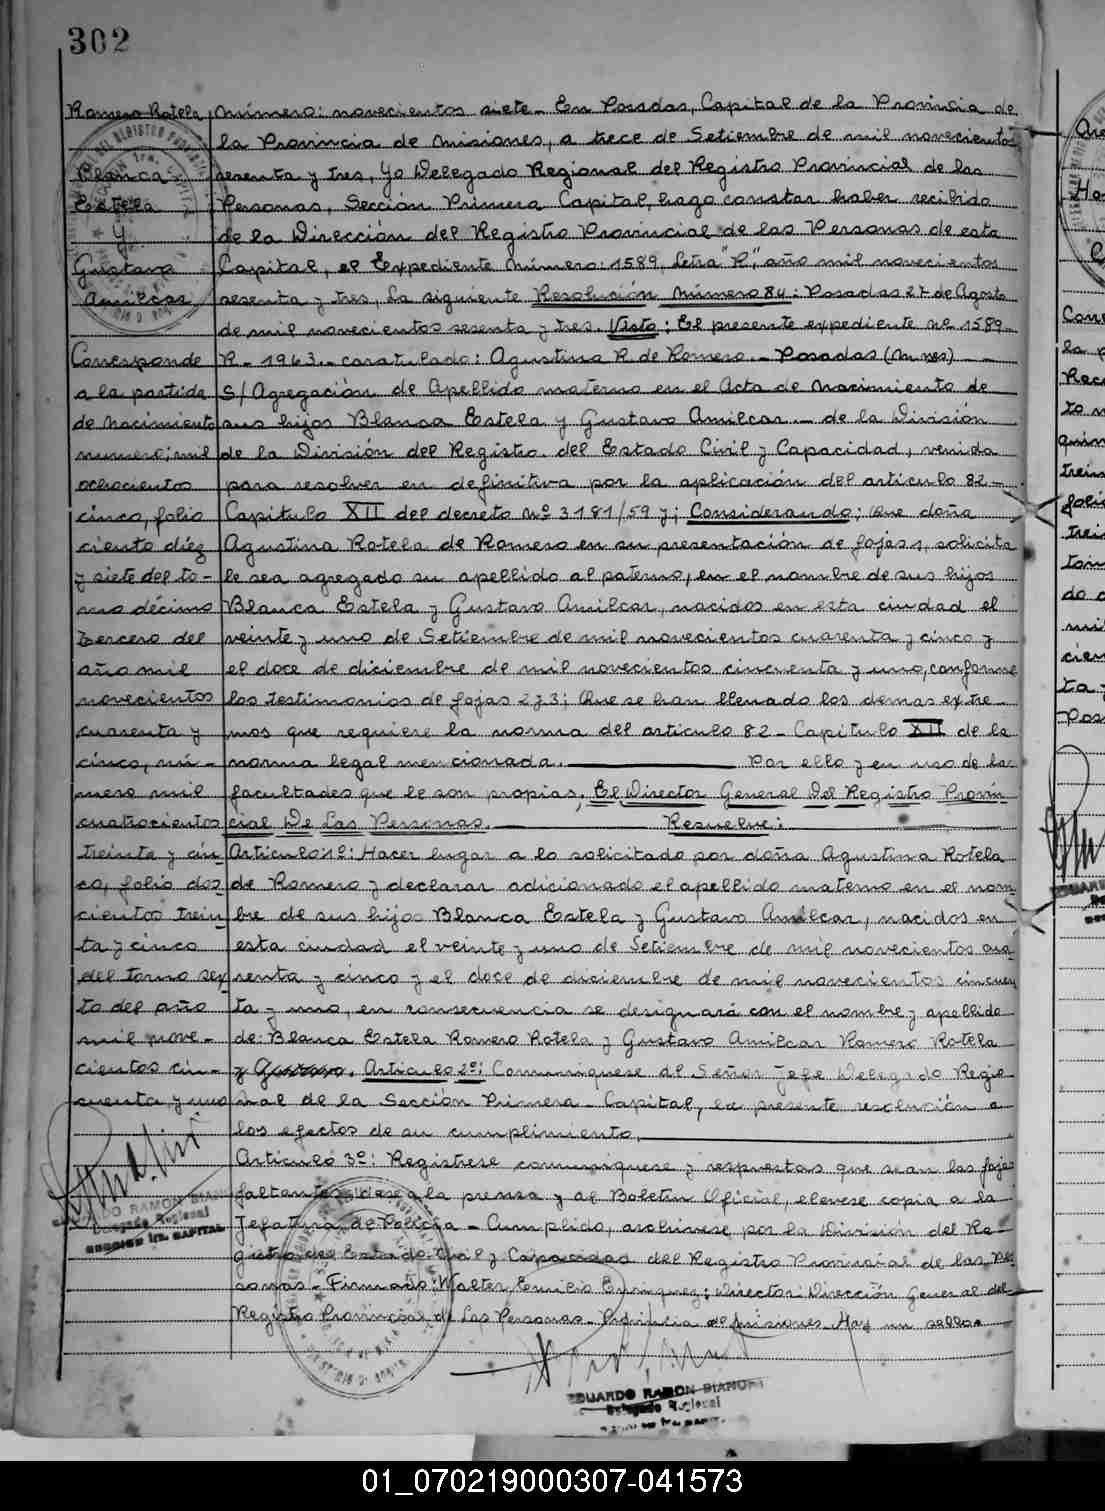 302
Romero Rotela
Blanca
Estela
y
Gustavo
Amilcar
Corresponde
a la partida
de nacimiento
numero; mil
ochocientos
cinco, folio
ciento diez
y siete del to-
mo décimo
tercero del
año mil
novecientos
cuarenta y
cinco, nú-
mero mil
cuatrocientos
treinta y cin-
co, folio dos-
cientos trein-
ta y cinco
del tomo sex-
to del año
mil nove-
cientos cin-
cuenta y uno
Número: novecientos siete - En Posadas, Capital de la Provincia de
la Provincia de Misiones, a trece de Setiembre de mil novecientos
sesenta y tres, Yo Delegado Regional del Registro Provincial de las
Personas, Sección Primera Capital, hago constar haber recibido
de la Dirección del Registro Provincial de las Personas de esta
Capital, el Expediente Número: 1589, Letra "R", año mil novecientos
sesenta y tres, la siguiente Resolución Número 84: Posadas 27 de Agosto
de mil novecientos sesenta y tres. Visto: El presente expediente nº 1589-
R - 1963 - caratulado: Agustina R. de Romero. - Posadas (Mnes) - -
S/ Agregación de Apellido materno en el Acta de Nacimiento de
sus hijos Blanca Estela y Gustavo Amilcar. - de la División
de la División del Registro del Estado Civil y Capacidad, venida
para resolver en definitiva por la aplicación del artículo 82 -
Capítulo XII del decreto Nº 3181/59 y; Considerando; Que doña
Agustina Rotela de Romero en su presentación de fojas 1, solicita
le sea agregado su apellido al paterno, en el nombre de sus hijos
Blanca Estela y Gustavo Amilcar, nacidos en esta ciudad el
veinte y uno de Setiembre de mil novecientos cuarenta y cinco y
el doce de diciembre de mil novecientos cincuenta y uno, conforme
los testimonios de fojas 2 y 3; Que se han llenado los demas extre-
mos que requiere la norma del artículo 82 - Capítulo XII de la
norma legal mencionada. Por ello y en uso de las
facultades que le son propias, El Director General Del Registro Provin
cial De Las Personas. Resuelve:
Artículo 1º: Hacer lugar a lo solicitado por doña Agustina Rotela
de Romero y declarar adicionado el apellido materno en el nom-
bre de sus hijos Blanca Estela y Gustavo Amilcar, nacidos en
esta ciudad el veinte y uno de Setiembre de mil novecientos cua-
renta y cinco y el doce de diciembre de mil novecientos cincuen
ta y uno, en consecuencia se designará con el nombre y apellido
de: Blanca Estela Romero Rotela y Gustavo Amilcar Romero Rotela
y Gustavo. Artículo 2º: Comuníquese al Señor Jefe Delegado Regio-
nal de la Sección Primera - Capital, la presente resolución a
los efectos de su cumplimiento.
Artículo 3º: Regístrese comuníquese y respuestas que sean las fojas
faltantes dese a la prensa y al Boletín Oficial, elevese copia a la
Jefatura de Policía - Cumplido, archivese por la División del Re-
gistro del Estado Civil y Capacidad del Registro Provincial de las Per
sonas - Firmado: Walter Emilio Enriquez; Director: Dirección General del
Registro Provincial de Las Personas - Provincia de Misiones. Hay un sello.
EDUARDO RAMON
Delegado Regional
SECCION 1ra. CAPITAL
EDUARDO RAMON
Delegado Regional
01_070219000307-041573